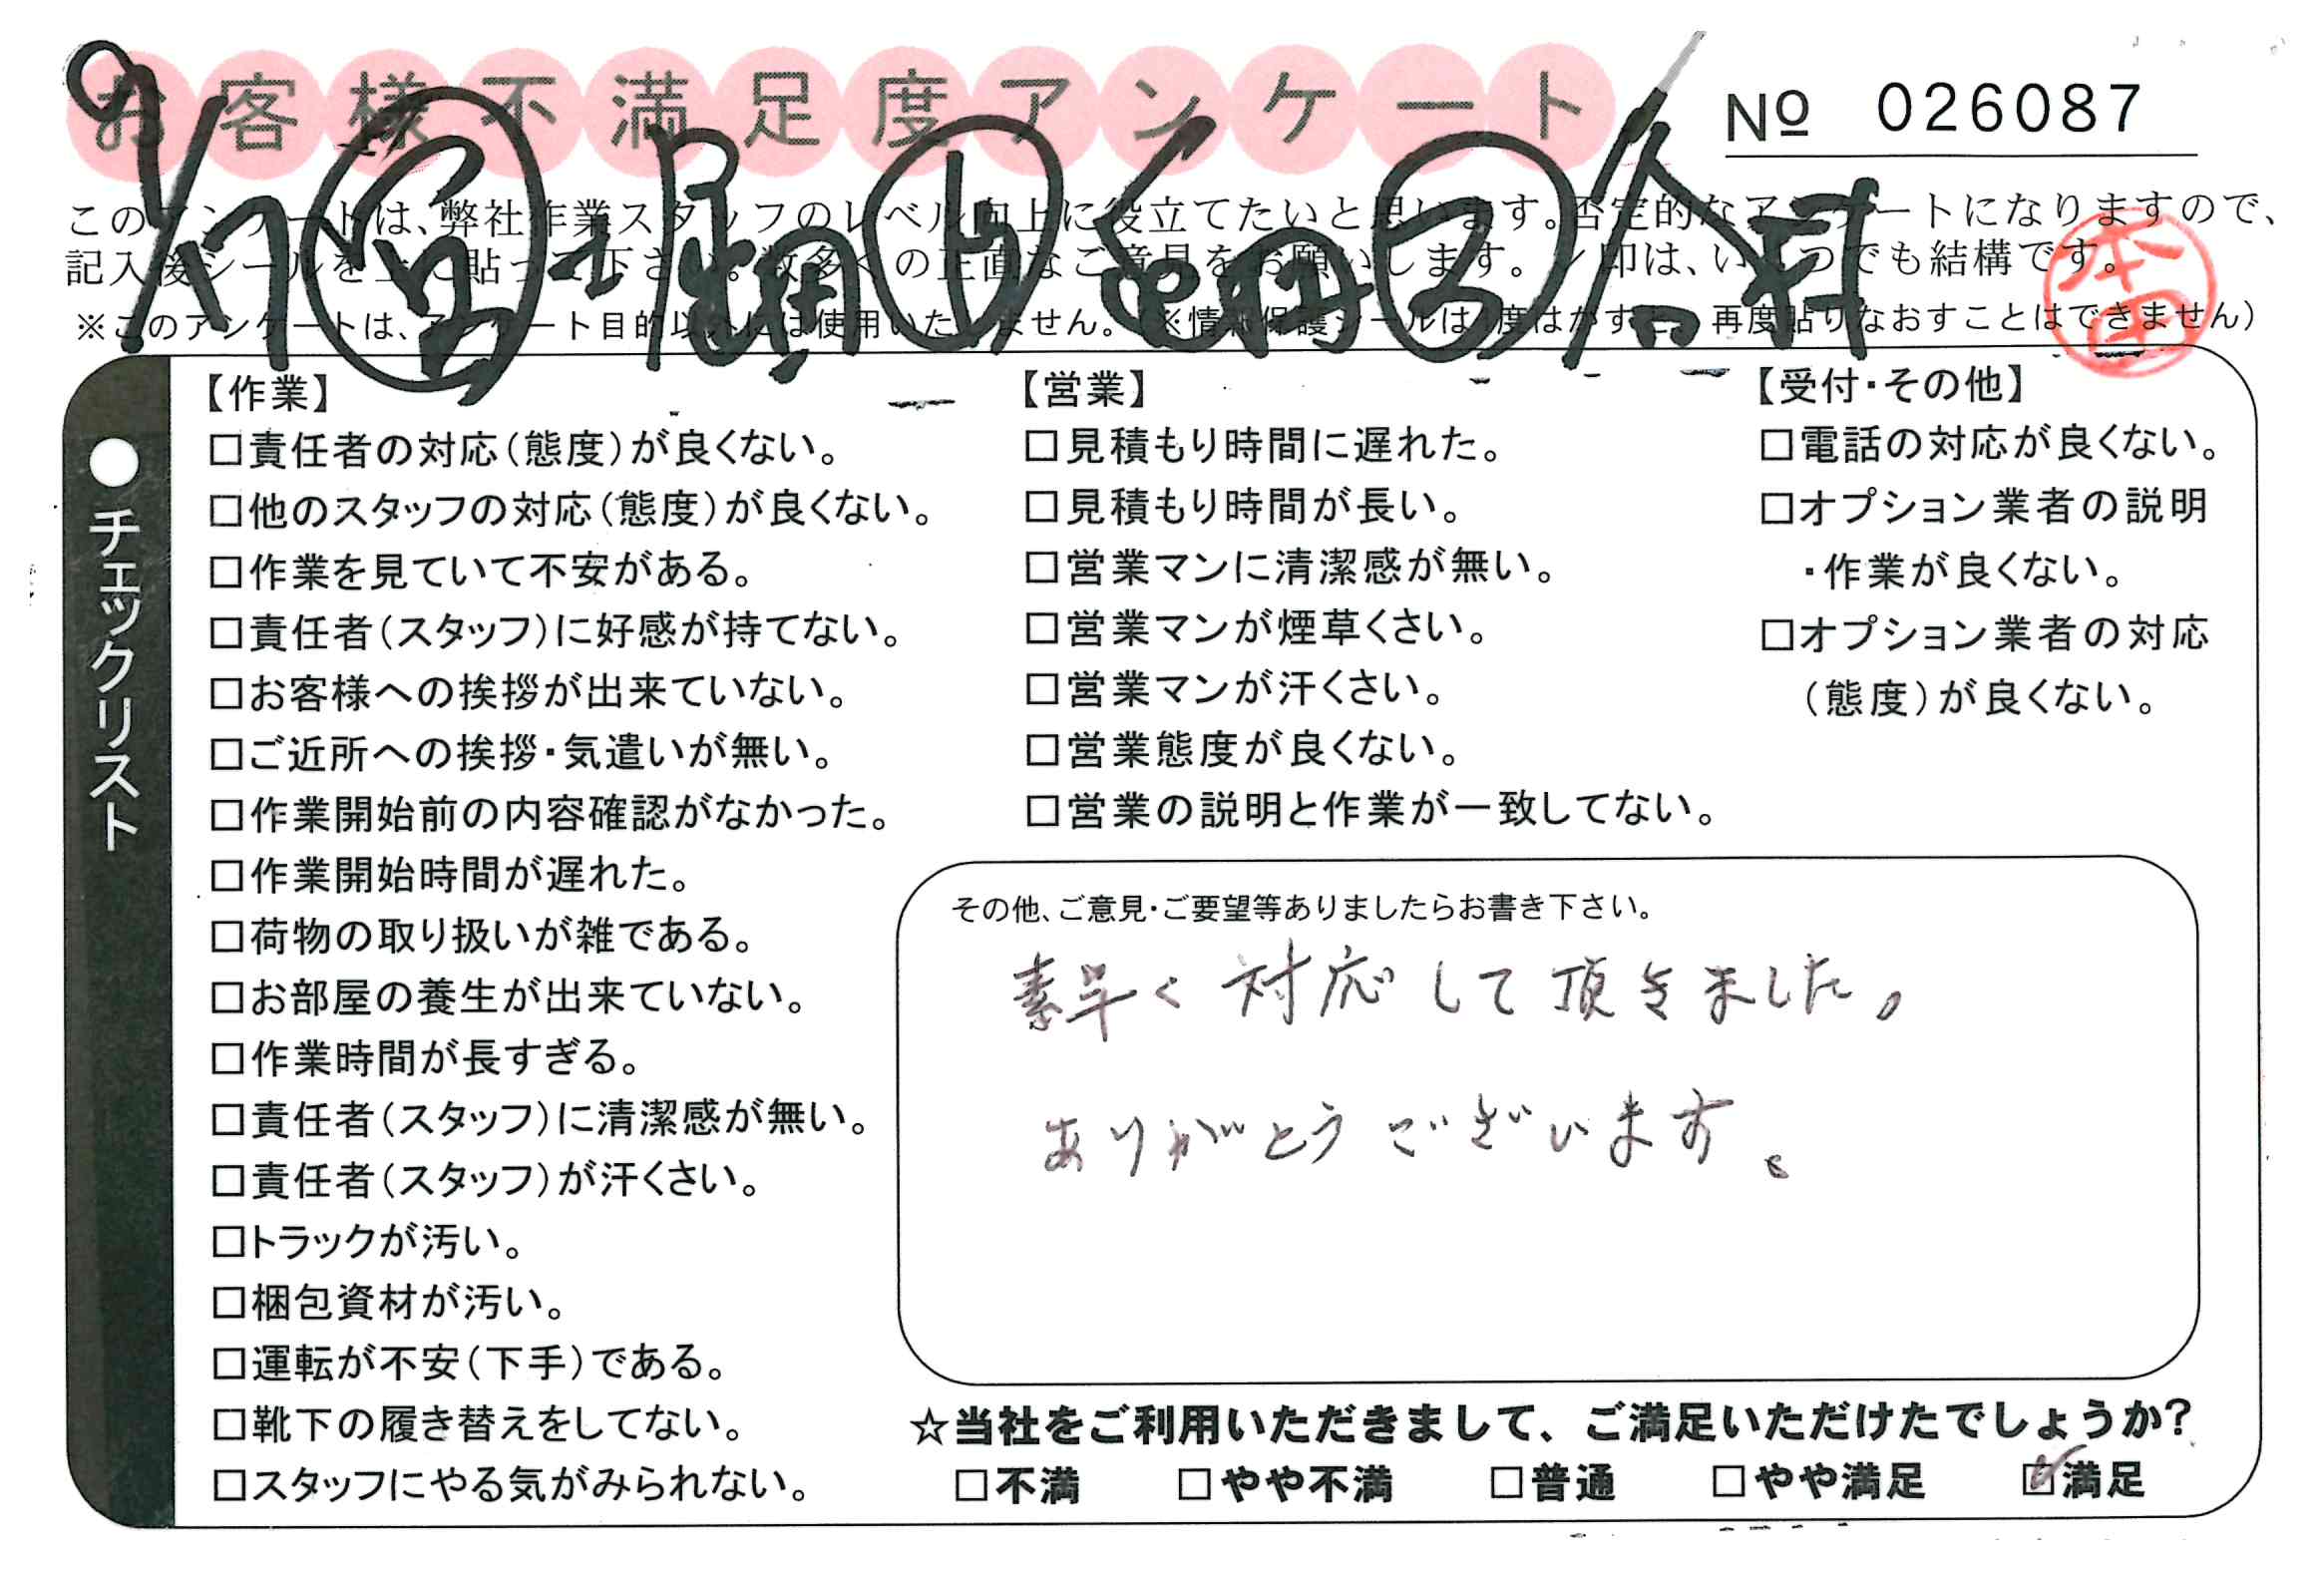 お客様不満足度アンケート
No 026087
このアンケートは、弊社作業スタッフのレベル向上に役立てたいと思います。否定的なアンケートになりますので、
記入後シールを上に貼って下さい。数多くの正直なご意見をお願いします。レ印は、いくつでも結構です。
※このアンケートは、アンケート目的以外には使用いたしません。(※情報保護シールは1度はがすと、再度貼りなおすことはできません)
本田
●チェックリスト
【作業】
□責任者の対応(態度)が良くない。
□他のスタッフの対応(態度)が良くない。
□作業を見ていて不安がある。
□責任者(スタッフ)に好感が持てない。
□お客様への挨拶が出来ていない。
□ご近所への挨拶・気遣いが無い。
□作業開始前の内容確認がなかった。
□作業開始時間が遅れた。
□荷物の取り扱いが雑である。
□お部屋の養生が出来ていない。
□作業時間が長すぎる。
□責任者(スタッフ)に清潔感が無い。
□責任者(スタッフ)が汗くさい。
□トラックが汚い。
□梱包資材が汚い。
□運転が不安(下手)である。
□靴下の履き替えをしてない。
□スタッフにやる気がみられない。
【営業】
□見積もり時間に遅れた。
□見積もり時間が長い。
□営業マンに清潔感が無い。
□営業マンが煙草くさい。
□営業マンが汗くさい。
□営業態度が良くない。
□営業の説明と作業が一致してない。
【受付・その他】
□電話の対応が良くない。
□オプション業者の説明
・作業が良くない。
□オプション業者の対応
(態度)が良くない。
その他、ご意見・ご要望等ありましたらお書き下さい。
素早く対応して頂きました。
ありがとうございます。
☆当社をご利用いただきまして、ご満足いただけたでしょうか?
□不満 □やや不満 □普通 □やや満足 ☑満足